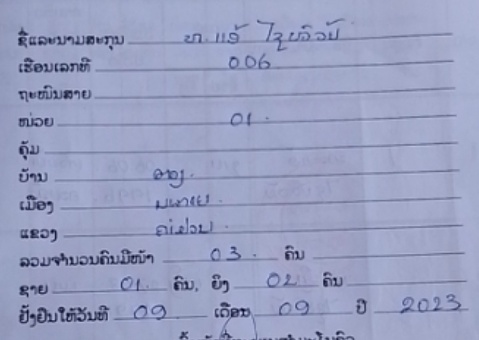 ຊື່ແລະນາມສະກຸນ ທ. ແອ້ ໄຊ
ເຮືອນເລກທີ 006
ຖະໜົນສາຍ
ໜ່ວຍ 01.
ຄຸ້ມ
ບ້ານ
ເມືອງ ມະຫາໄຊ
ແຂວງ ຄຳມ່ວນ.
ລວມຈຳນວນຄົນມີໜ້າ 03. ຄົນ
ຊາຍ 01. ຄົນ, ຍິງ 02 ຄົນ
ຢັ້ງຢືນໃຫ້ວັນທີ 09 ເດືອນ 09 ປີ 2023